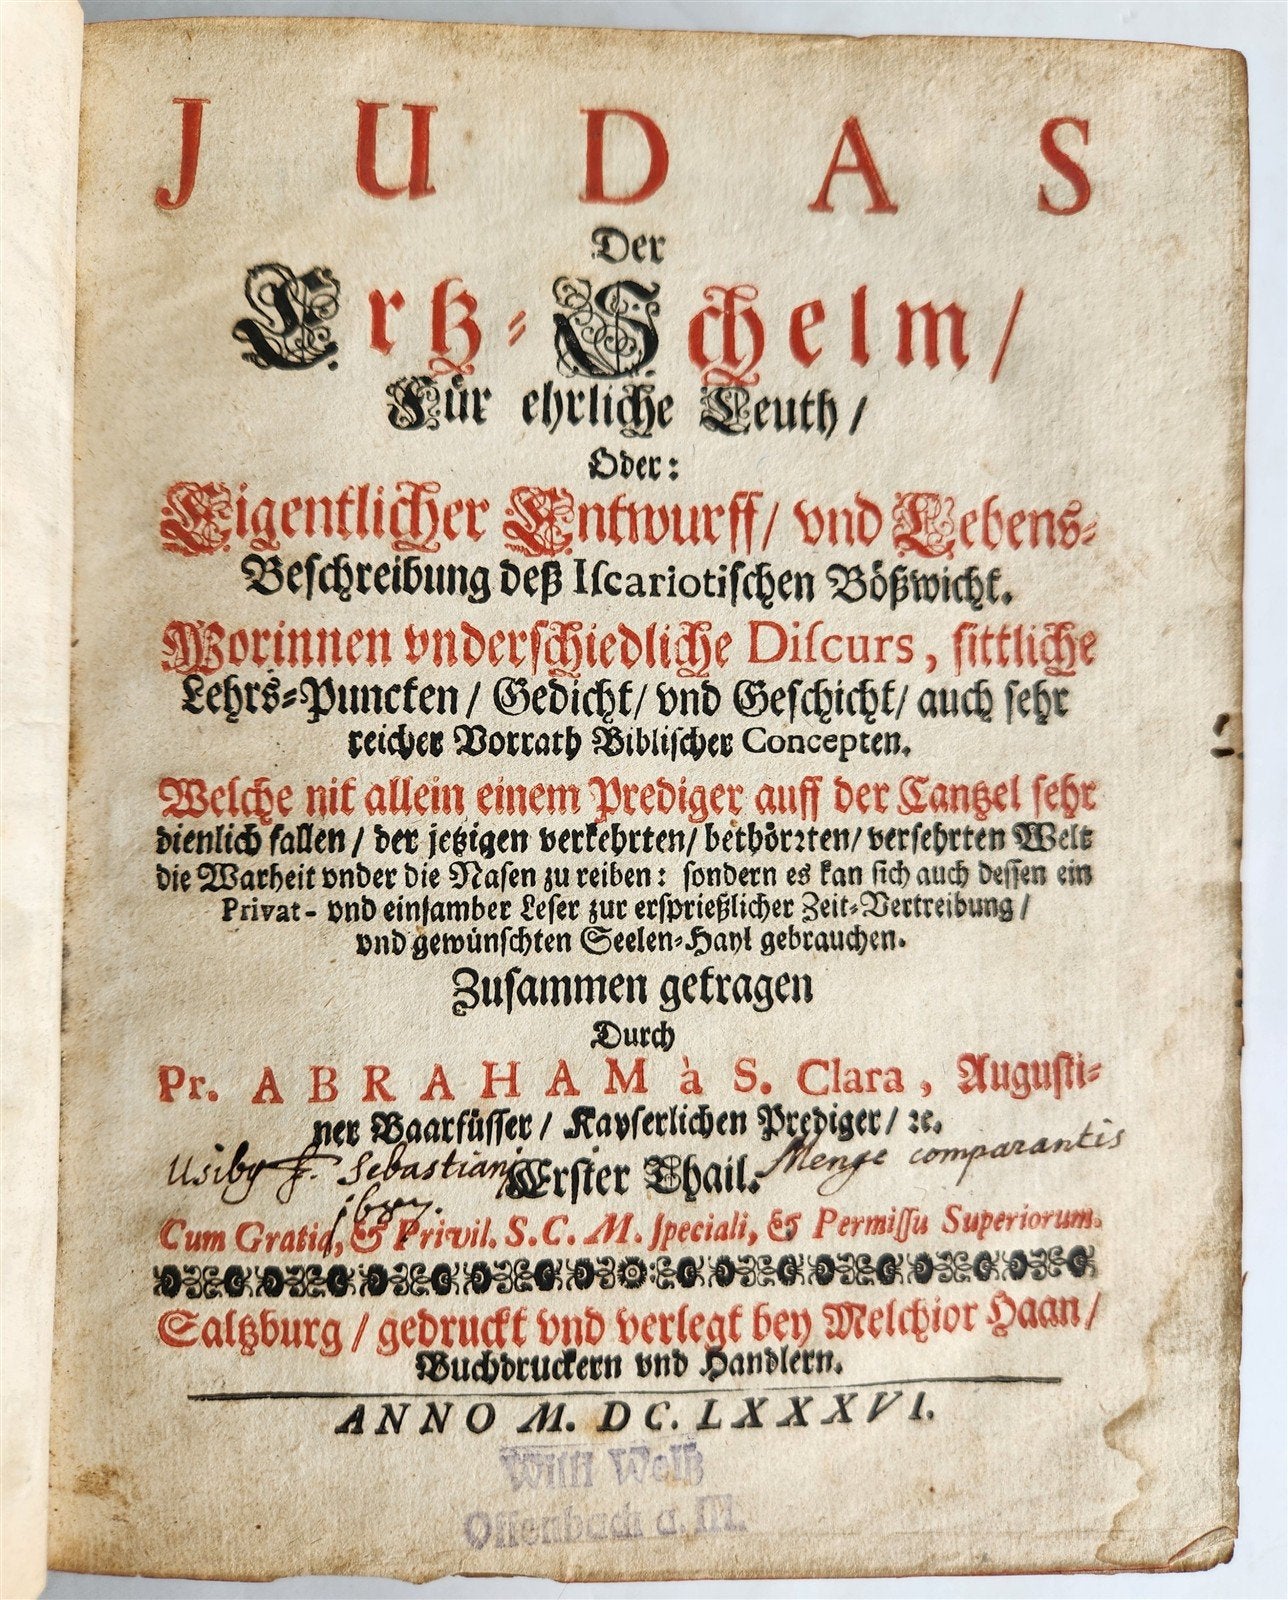 JUDAS
Der
Ertz-Schelm /
Für ehrliche Leuth /
Oder:
Eigentlicher Entwurff / vnd Lebens-
Beschreibung deß Iscariotischen Bößwicht.
Worinnen vnderschiedliche Discurs, sittliche
Lehrs-Puncten / Gedicht / vnd Geschicht / auch sehr
reicher Vorrath Biblischer Concepten.
Welche nit allein einem Prediger auff der Cantzel sehr
dienlich fallen / der jetzigen verkehrten / bethörꝛten / versehrten Welt
die Warheit vnder die Nasen zu reiben: sondern es kan sich auch dessen ein
Privat- vnd einsamber Leser zur ersprießlicher Zeit-Vertreibung /
vnd gewünschten Seelen-Hayl gebrauchen.
Zusammen getragen
Durch
Pr. ABRAHAM à S. Clara, Augusti-
ner Baarfüsser / Kayserlichen Prediger / ꝛc.
Sebastiani comparantis
Erster Thail.
Cum Gratia, & Privil. S. C. M. speciali, & Permissu Superiorum.
Saltzburg / gedruckt vnd verlegt bey Melchior Haan /
Buchdruckern vnd Handlern.
ANNO M. DC. LXXXVI.
Willi Weiß
Offenbach a. M.